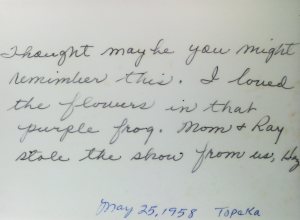 Thought maybe you might
remimber this. I loved
the flowers in that
purple frog. Mom & Ray
stole the show from us,
May 25, 1958 Topeka